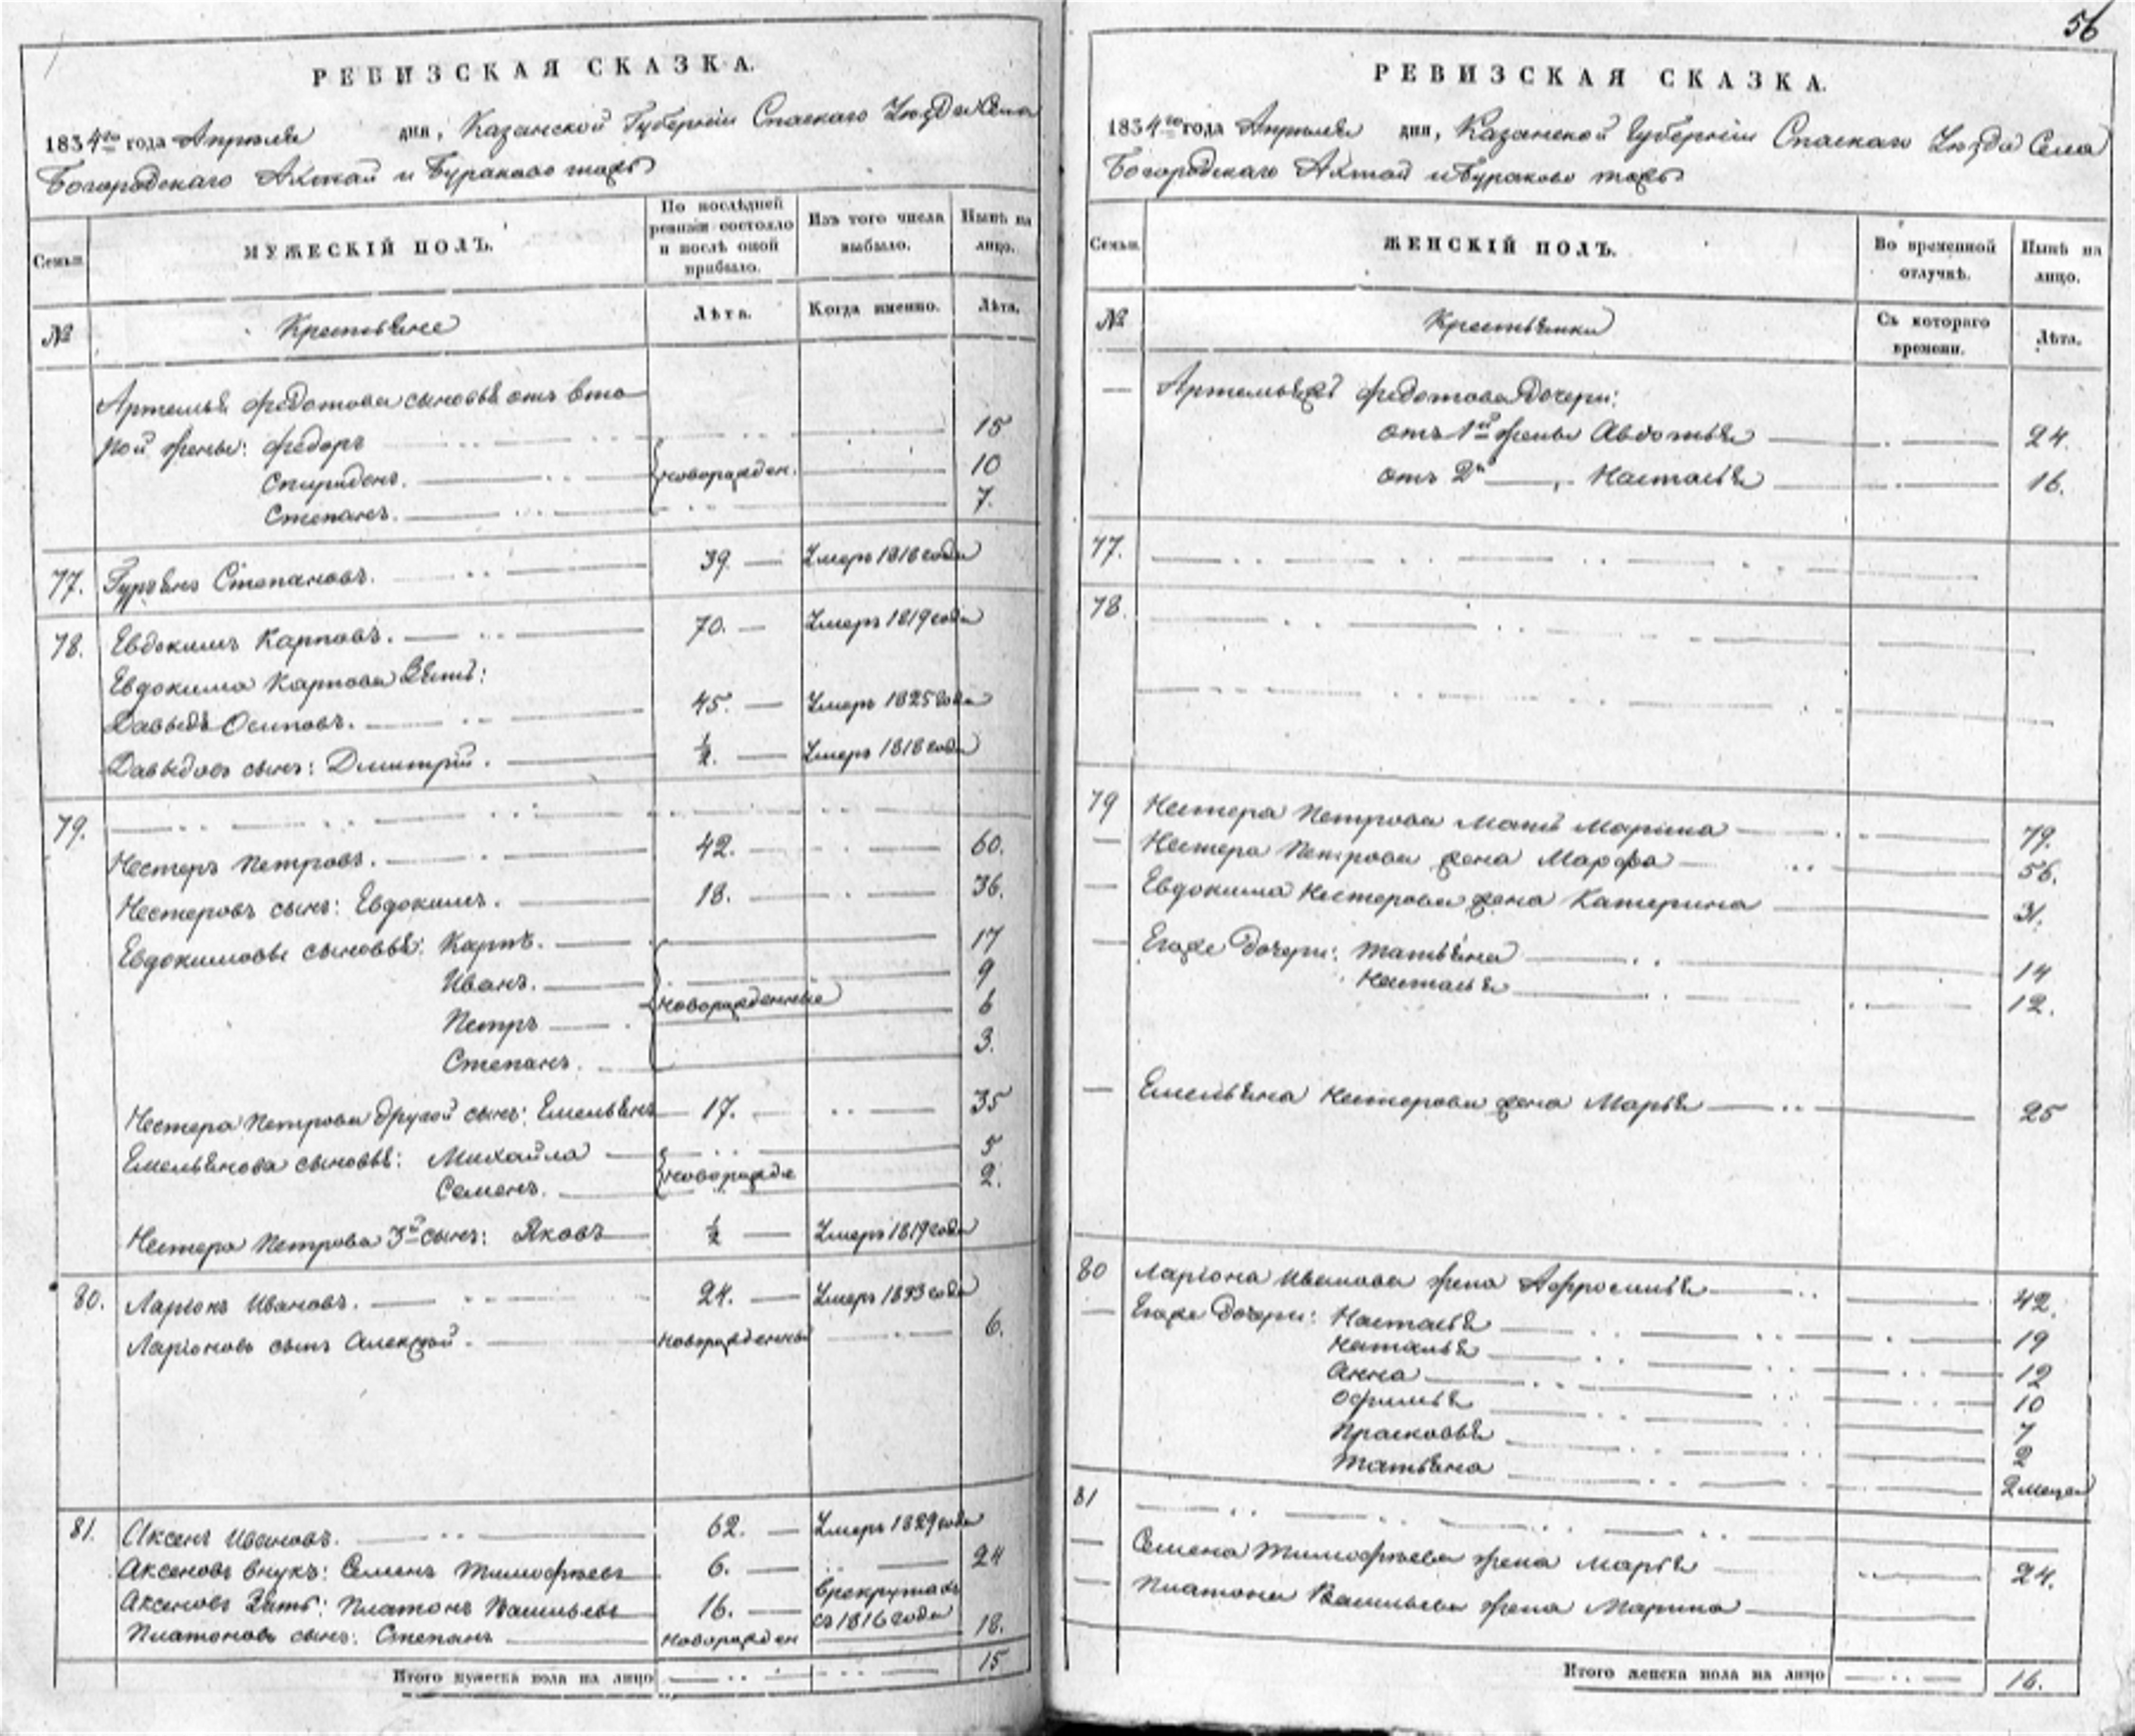 РЕВИЗСКАЯ СКАЗКА.
1834го года Апреля дня, Казанской Губернiи Спаскаго Уѣзда Села
Богородскаго Ахтай и Бураково тожъ
Семьи.
МУЖЕСКIЙ ПОЛЪ.
По послѣдней ревизiи состояло и послѣ оной прибыло.
Изъ того числа выбыло.
Нынѣ на лицо.
№
Крестьяне
Лѣта.
Когда именно.
Лѣта.
Артемья Федотова сыновья отъ вто
рой жены: Федоръ 15
Спиридонъ. Новорожден. 10
Степанъ. 7.
77. Гурьянъ Степановъ. 39. Умеръ 1818 года
78. Евдокимъ Карповъ. 70. Умеръ 1819 года
Евдокима Карпова Зять:
Давыдъ Осиповъ. 45. Умеръ 1825 года
Давыдовъ сынъ: Дмитрiй. 1/2. Умеръ 1818 года
79.
Нестеръ Петровъ. 42. 60.
Нестеровъ сынъ: Евдокимъ. 18. 36.
Евдокимовы сыновья: Карпъ. 17
Иванъ. 9
Новорожденные
Петръ 6
Степанъ. 3.
Нестера Петрова другой сынъ: Емельянъ 17. 35
Емельянова сыновья: Михайла 5
Новорожде
Семенъ. 2.
Нестера Петрова 3й сынъ: Яковъ 1/2 Умеръ 1819 года
80. Ларiонъ Ивановъ. 24. Умеръ 1833 года
Ларiоновъ сынъ Алексѣй. Новорожденный 6.
81. Аксенъ Ивановъ. 62. Умеръ 1829 года
Аксеновъ внукъ: Семенъ Тимофѣевъ 6. 24
Аксеновъ Зять: Платонъ Васильевъ 16. В рекрутахъ съ 1816 года
Платоновъ сынъ: Степанъ Новорожден 18.
Итого мужеска пола на лицо 15
56
РЕВИЗСКАЯ СКАЗКА.
1834го года Апреля дня, Казанской Губернiи Спаскаго Уѣзда Села
Богородскаго Ахтай и Бураково тожъ
Семьи.
ЖЕНСКIЙ ПОЛЪ.
Во временной отлучкѣ.
Нынѣ на лицо.
№
Крестьянки
Съ котораго времени.
Лѣта.
Федотова Дочери:
отъ 1й жены Авдотья 24.
отъ 2й Настасья 16.
77.
78.
79 Нестера Петрова Мать Марина 79.
Нестера Петрова жена Марфа 56.
Евдокима Нестерова жена Катерина 31.
Егоже Дочери: Татьяна 14
Наталья 12.
Емельяна Нестерова жена Марья 25
80 Ларiона Иванова жена Афросинья 42.
Егоже Дочери: Настасья 19
Наталья 12
Анна 10
Офимья 7
Прасковья 2
Татьяна 2 месеца
81
Семена Тимофѣева жена Марья 24.
Платона Васильева жена Марина
Итого женска пола на лицо 16.